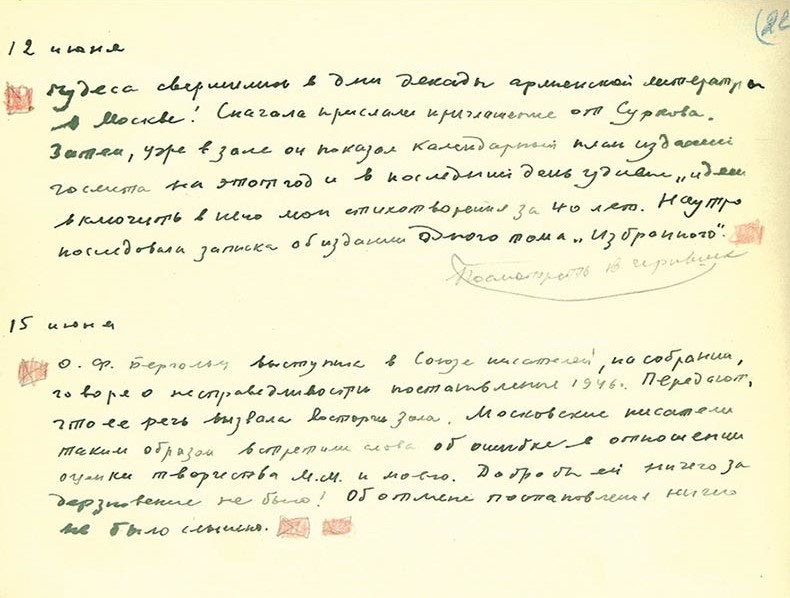 (22
12 июня
Чудеса свершились в дни декады армянской литературы
в Москве! Сначала прислали приглашение от Суркова.
Затем, уже в зале он показал календарный план изданий
гослита на этот год и в последний день удивил „идеей
включить в него мои стихотворения за 40 лет. Наутро
последовала записка об издании одного тома „Избранного".
Посмотреть в черновике
15 июня
О. Ф. Берггольц выступила в Союзе писателей, на собрании,
говоря о несправедливости постановления 1946г. Передают,
что ее речь вызвала восторги зала. Московские писатели
таким образом встретили слова об ошибке в отношении
оценки творчества М.М. и моего. Добро бы ей ничего за
дерзновение не было! Об отмене постановления ничего
не было слышно.